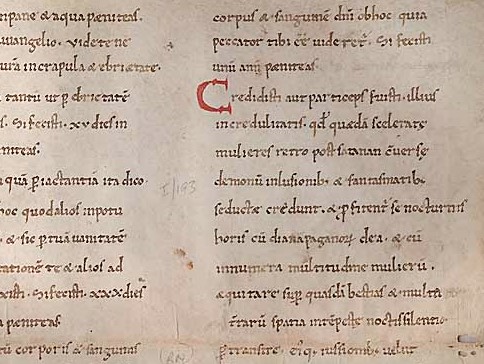 pane & aqua pæniteas.
uuangelio. uidete ne
ura in crapula & ebrietate.
tantū ut p̱ ebrietatē
s. Si fecisti. xv dies in
niteas.
quā p̱ iactantia ita dico
hoc quod alios in potu
& sic p̱ tuā uanitatē
tationē te & alios ad
xisti. Si fecisti. xxx dies
pæniteas.
tū corporis & sanguinis
corpus & sanguinē dn̄i ob hoc quia
peccator tibi eē uideret̄. Si fecisti
unū annū pæniteas.
Credidisti aut particeps fuisti. illius
incredulitatis. qđ quædā sceleratę
mulieres retro post satanan cuersę
demonū inlusionib; & fantasmatib;
seductæ credunt. & p̱fitent̄ se nocturnis
horis cū diana paganoꝝ dea. & cū
innumera multitudine mulierū.
æquitare sup̱ quasdā bestias & multa
t̄rarū spatia intēpestę noctis silentio
p̱transire. ei'q; iussionib; uelut
I/193